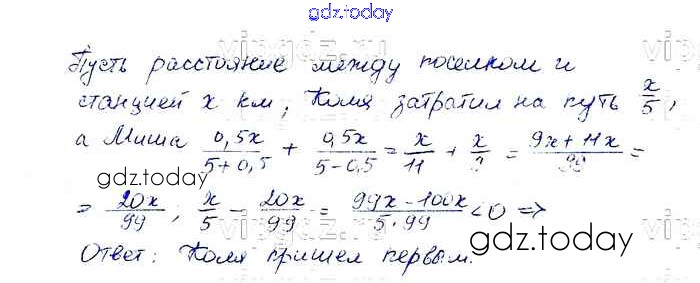 gdz.today
Пусть расстояние между поселком и
станцией x км, Коля затратил на путь x/5,
а Миша 0,5x/(5+0,5) + 0,5x/(5-0,5) = x/11 + x/9 = (9x+11x)/99 =
gdz.today
= 20x/99; x/5 - 20x/99 = (99x-100x)/(5·99) < 0 =>
gdz.today
Ответ: Коля пришел первым.